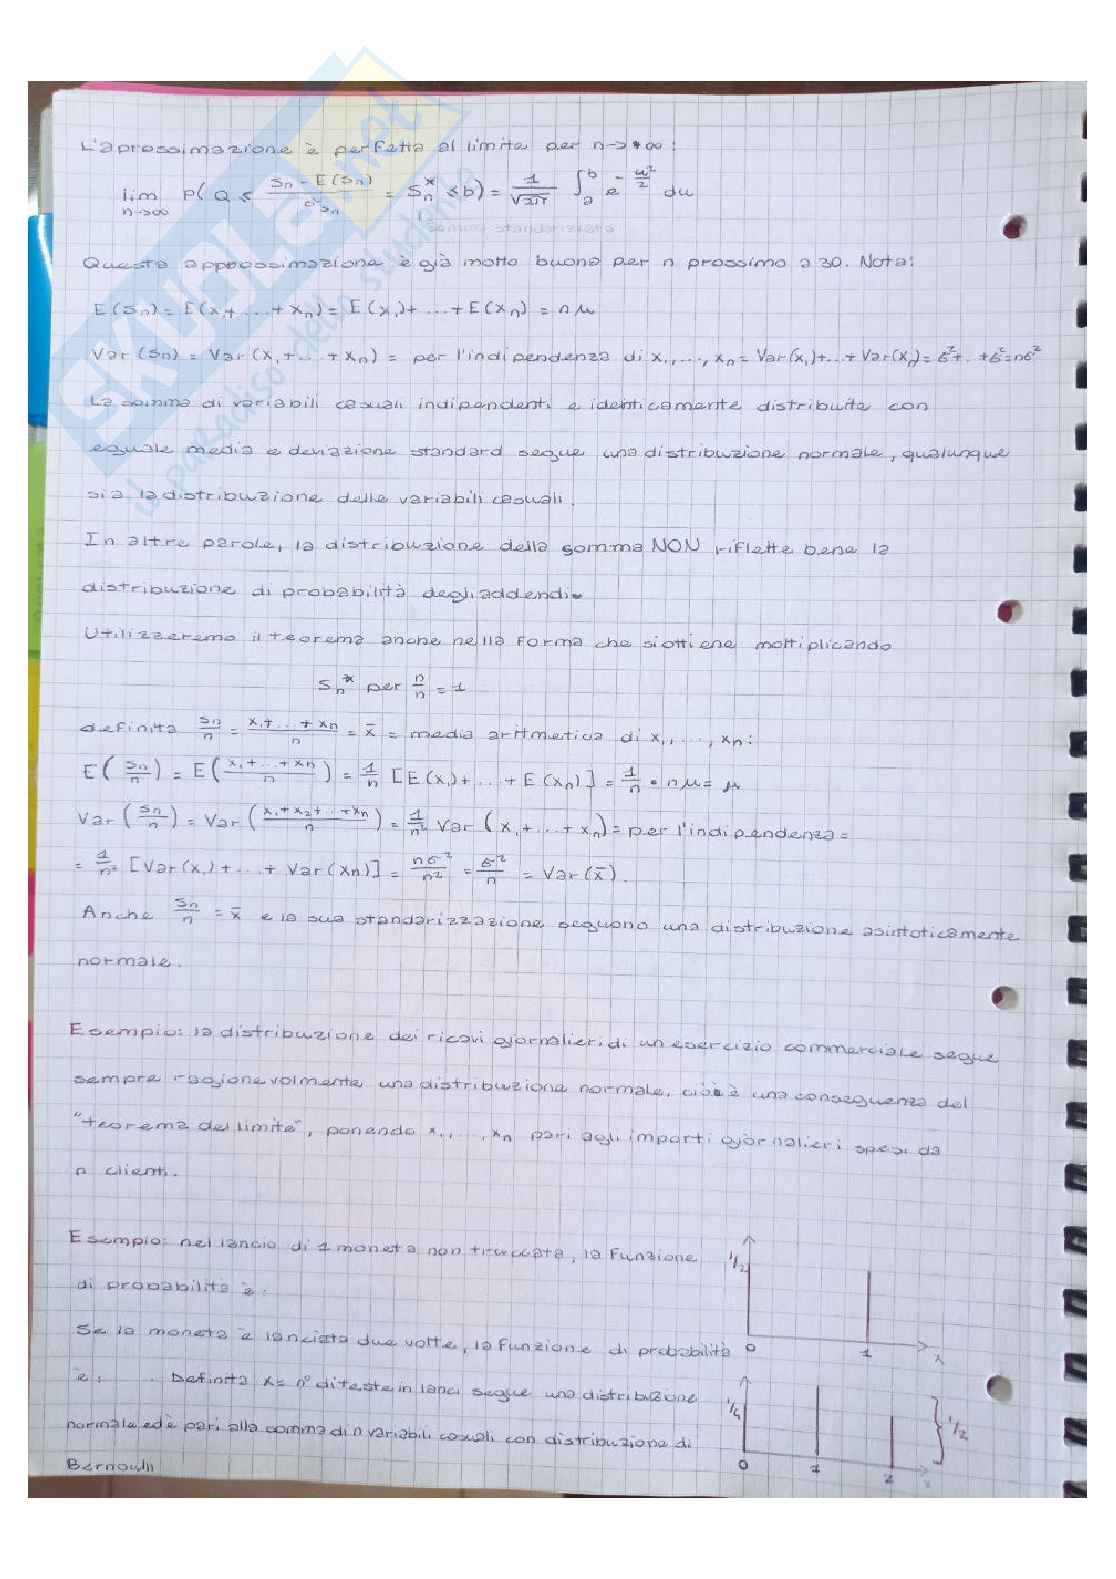 L'aprossimazione è perfetta al limite per n→+∞:
lim n→∞ P(a ≤ Sn - E(Sn) / σSn = Sn* ≤ b) = 1/√2π ∫ₐᵇ e^(-u²/2) du
somma standarizzata
Questa approssimazione è già molto buona per n prossimo a 30. Nota:
E(Sn) = E(x₁+...+xn) = E(x₁)+...+E(xn) = nμ
Var(Sn) = Var(x₁+...+xn) = per l'indipendenza di x₁,...,xn = Var(x₁)+...+Var(xn) = σ²+..+σ²=nσ²
La somma di variabili casuali indipendenti e identicamente distribuite con
eguale media e deviazione standard segue una distribuzione normale, qualunque
sia la distribuzione delle variabili casuali.
In altre parole, la distribuzione della somma NON riflette bene la
distribuzione di probabilità degli addendi.
Utilizzeremo il teorema anche nella forma che si ottiene moltiplicando
Sn* per n/n = 1
definita Sn/n = x₁+...+xn/n = x̄ = media aritmetica di x₁,...,xn:
E(Sn/n) = E(x₁+...+xn/n) = 1/n [E(x₁)+...+E(xn)] = 1/n • nμ = μ
Var(Sn/n) = Var(x₁+x₂+..+xn/n) = 1/n² Var(x₁+...+xn) = per l'indipendenza =
= 1/n² [Var(x₁)+...+Var(xn)] = nσ²/n² = σ²/n = Var(x̄).
Anche Sn/n = x̄ e la sua standarizzazione seguono una distribuzione asintoticamente
normale.
Esempio: la distribuzione dei ricavi giornalieri di un esercizio commerciale segue
sempre ragionevolmente una distribuzione normale, ciò è una conseguenza del
"teorema del limite", ponendo x₁,...,xn pari agli importi giornalieri spesi da
n clienti.
Esempio: nel lancio di 1 moneta non truccata, la funzione
di probabilità è:
1/2
0 1 x
Se la moneta è lanciata due volte, la funzione di probabilità
è: . Definita x= n° di teste in lanci segue una distribuzione
normale ed è pari alla somma di n variabili casuali con distribuzione di
Bernoulli
1/4
1/2
0 1 2 x
SKUOLA.net
il paradiso dello studente